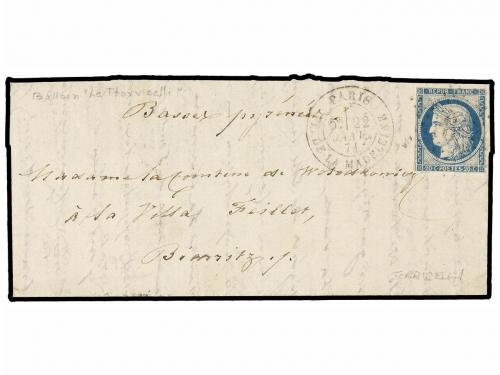 Ballon "Le Torricelli"
Basses pyrénées
PARIS
R. DE LA MADELEINE
22
JANV.
71
REPUB. FRANC.
20 C. POSTES 20 C.
Madame la Comtesse de
à la Villa Feillet,
Biarritz
TORRICELLI